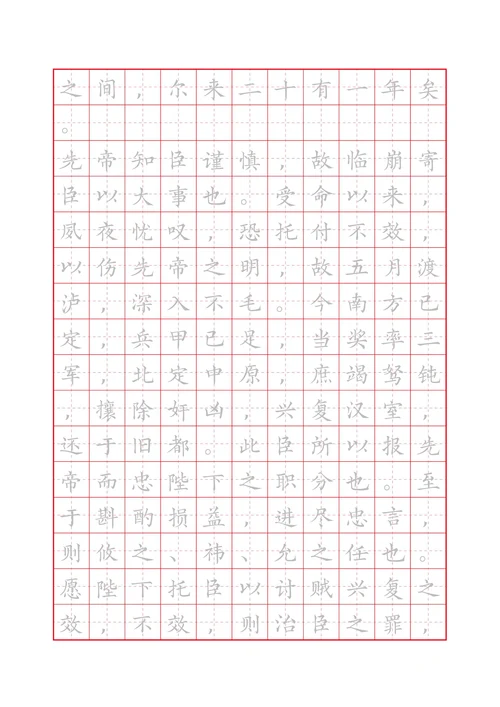 之间，尔来二十有一年矣
。
先帝知臣谨慎，故临崩寄
臣以大事也。受命以来，
夙夜忧叹，恐托付不效，
以伤先帝之明，故五月渡
泸，深入不毛。今南方已
定，兵甲已足，当奖率三
军，北定中原，庶竭驽钝
，攘除奸凶，兴复汉室，
还于旧都。此臣所以报先
帝而忠陛下之职分也。至
于斟酌损益，进尽忠言，
则攸之、祎、允之任也。
愿陛下托臣以讨贼兴复之
效，不效，则治臣之罪，